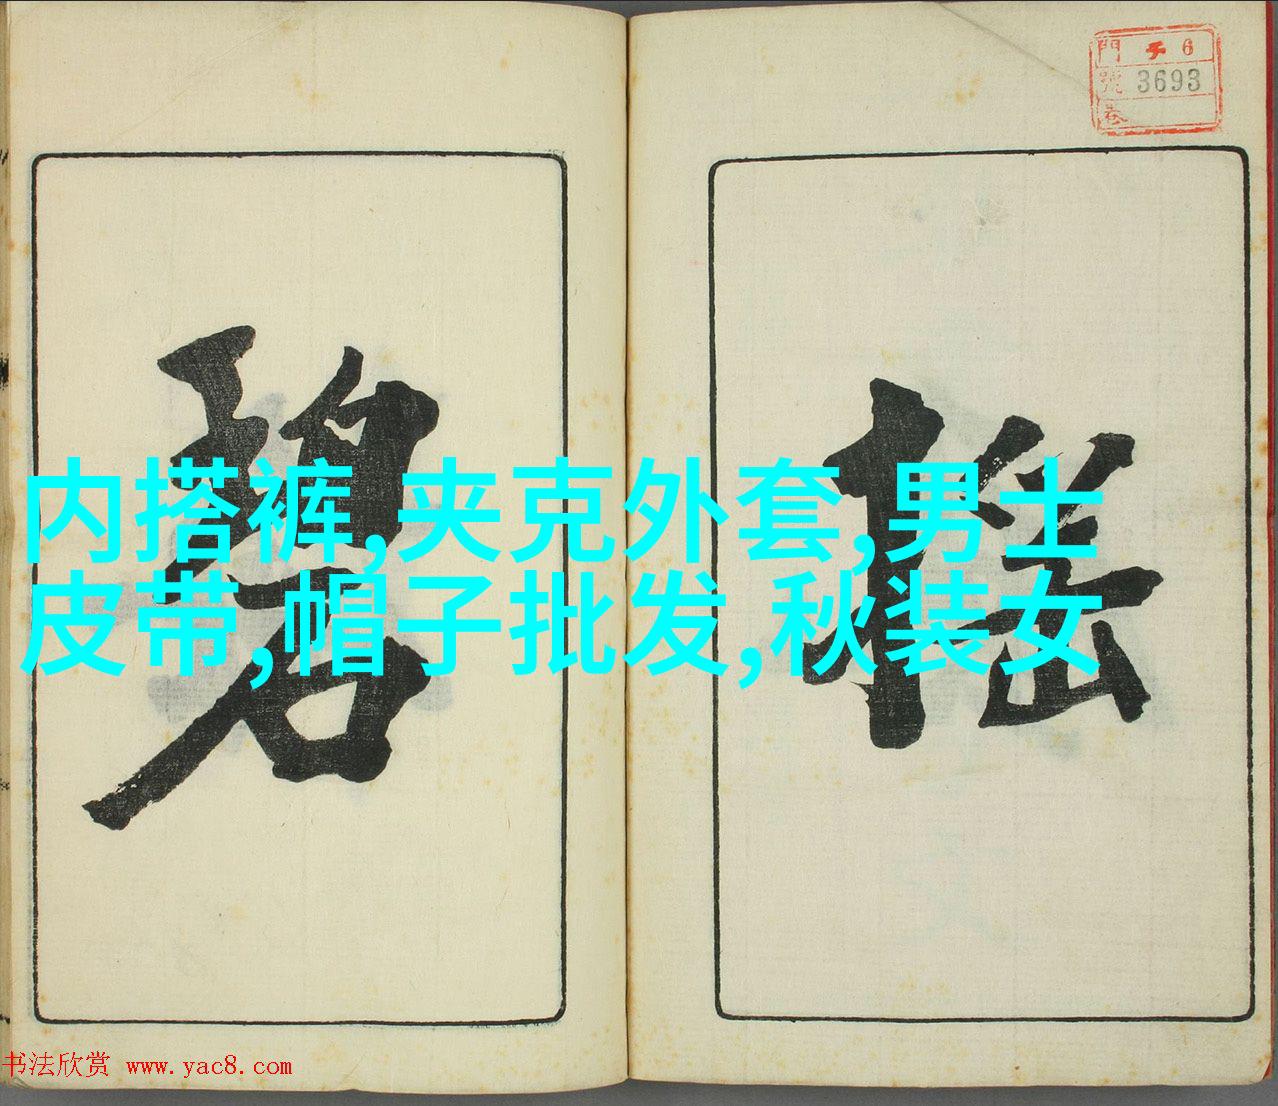 門 千 6
號 3693
卷
搖
碧
内搭裤,夹克外套,男士
皮带,帽子批发,秋装女
书法欣赏 www.yac8.com